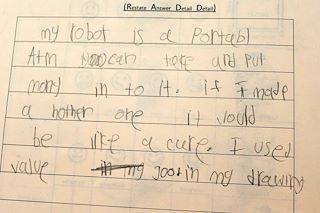 (Restate Answer Detail Detail)
my robot is a Portabl
Atm can take and Put
mony in to it. if I made
a nother one it would
be like a cure. I used
value in my drawing